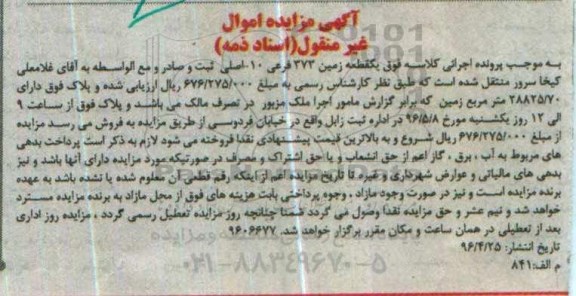 آگهی مزایده اموال
غیر منقول(اسناد ذمه)
به موجب پرونده اجرائی کلاسه فوق یکقطعه زمین ۳۷۳ فرعی ۱۰-اصلی ثبت و صادر و مع الواسطه به آقای غلامعلی
کیخا سرور منتقل شده است که طبق نظر کارشناس رسمی به مبلغ ۶۷۶/۲۷۵/۰۰۰ ریال ارزیابی شده و پلاک فوق دارای
۲۸۸۲۵/۷۰ متر مربع زمین که برابر گزارش مامور اجرا ملک مزبور در تصرف مالک می باشد و پلاک فوق از ساعت ۹
الی ۱۲ روز یکشنبه مورخ ۹۶/۵/۸ در اداره ثبت زابل واقع در خیابان فردوسی از طریق مزایده به فروش می رسد مزایده
از مبلغ ۶۷۶/۲۷۵/۰۰۰ ریال شروع و به بالاترین قیمت پیشنهادی نقدا فروخته می شود لازم به ذکر است پرداخت بدهی
های مربوط به آب ، برق ، گاز اعم از حق انشعاب و یا حق اشتراک و مصرف در صورتیکه مورد مزایده دارای آنها باشد و نیز
بدهی های مالیاتی و عوارض شهرداری و غیره تا تاریخ مزایده اعم از اینکه رقم قطعی آن معلوم شده یا نشده باشد به عهده
برنده مزایده است و نیز در صورت وجود مازاد ، وجوه پرداختی بابت هزینه های فوق از محل مازاد به برنده مزایده مسترد
خواهد شد و نیم عشر و حق مزایده نقدا وصول می گردد ضمنا چنانچه روز مزایده تعطیل رسمی گردد ، مزایده روز اداری
بعد از تعطیلی در همان ساعت و مکان مقرر برگزار خواهد شد. ۹۶۰۶۶۷۷
تاریخ انتشار: ۹۶/۴/۲۵
م الف:۸۴۱
۰۲۱-۸۸۳۴۹۶۷۰-۵